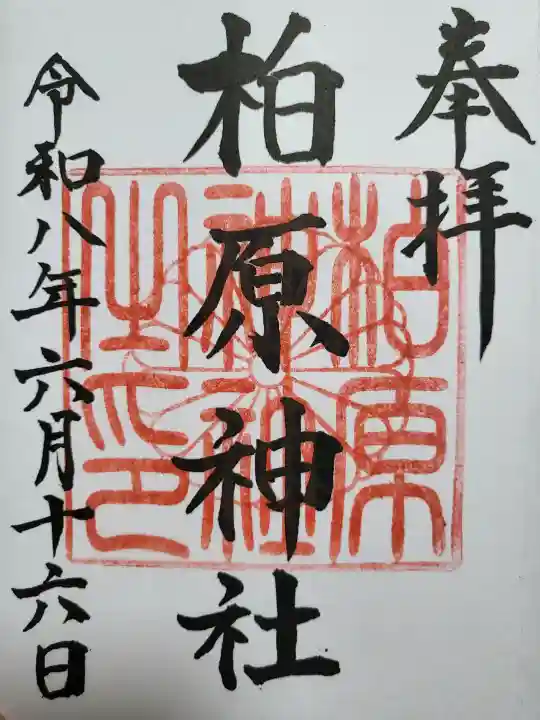 奉拝
柏原神社
令和八年六月十六日
柏原
神社
之印